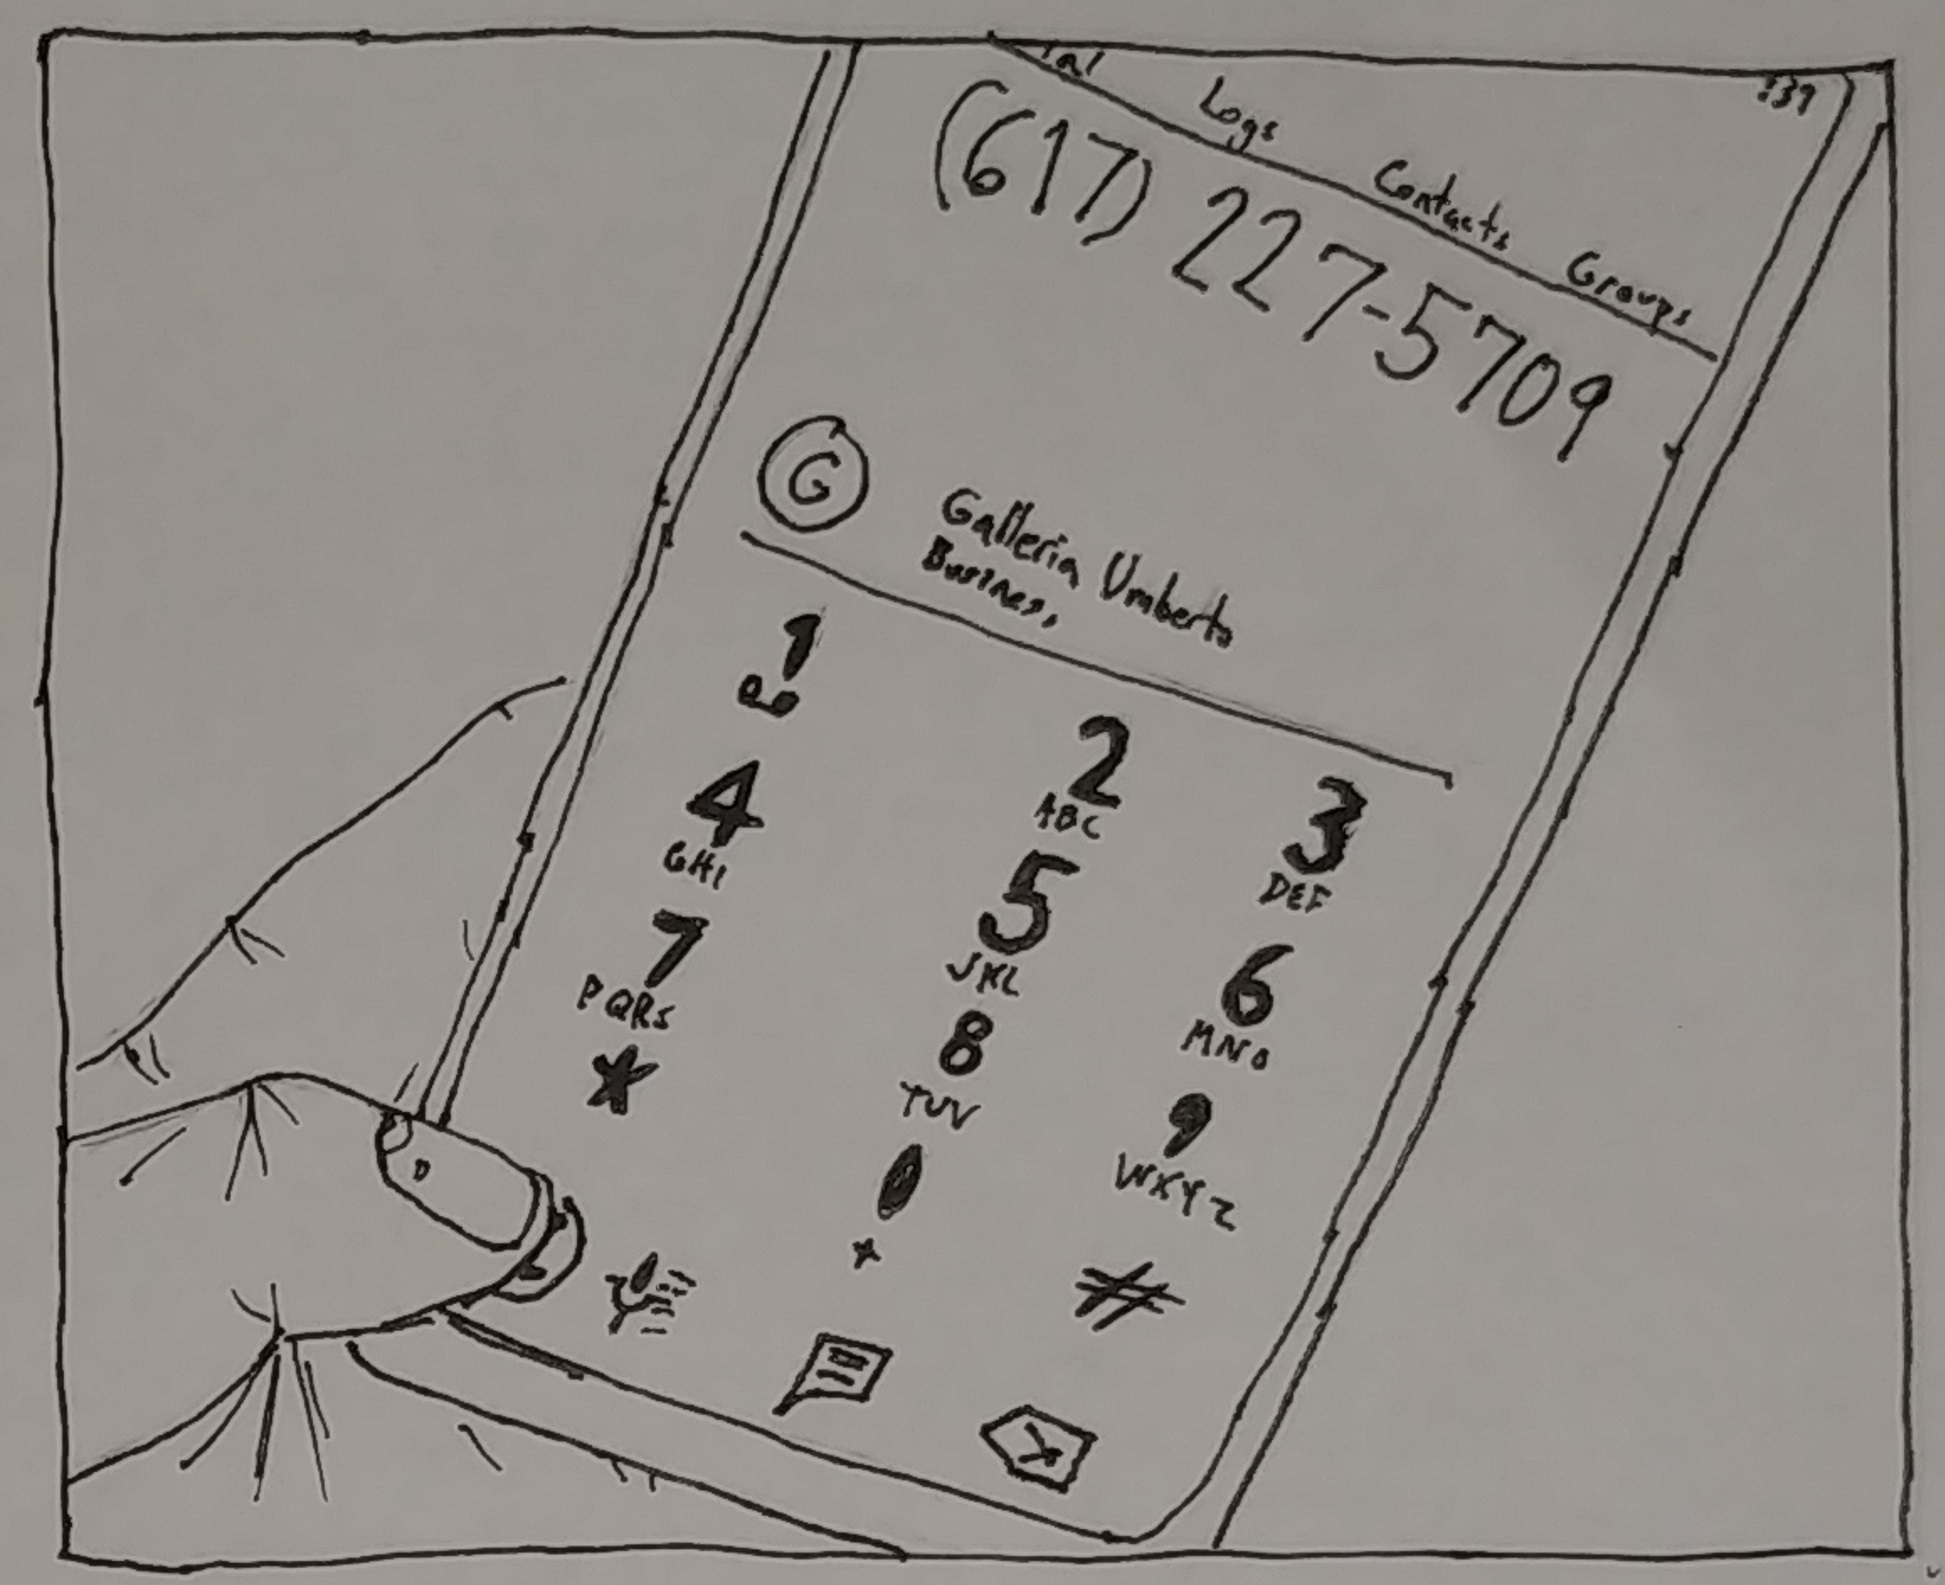 :39
Logs Contacts Groups
(617) 227-5709
G
Galleria Umberto
1
2
ABC
3
DEF
4
GHI
5
JKL
6
MNO
7
PQRS
8
TUV
9
WXYZ
*
0
+
#